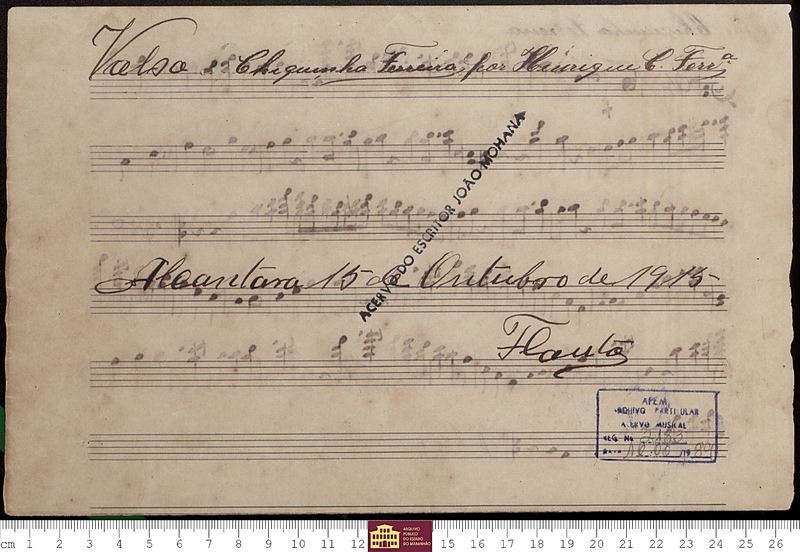 Valsa Chiquinha Ferreira por Henrique C. Ferrª
ACERVO DO ESCRITOR JOÃO MOHANA
Alcantara 15 de Outubro de 1915
Flauta
APEM
ARQUIVO PARTICULAR
ACERVO MUSICAL
REG. Nº
DATA
cm 1 2 3 4 5 6 7 8 9 10 11 12 15 16 17 18 19 20 21 22 23 24 25 26
ARQUIVO
PÚBLICO
DO ESTADO
DO MARANHÃO